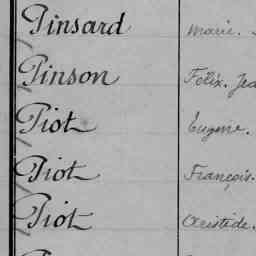 Pinsard Marie.
Pinson Félix. Jea
Piot Eugénie.
Piot François.
Piot Aristide.